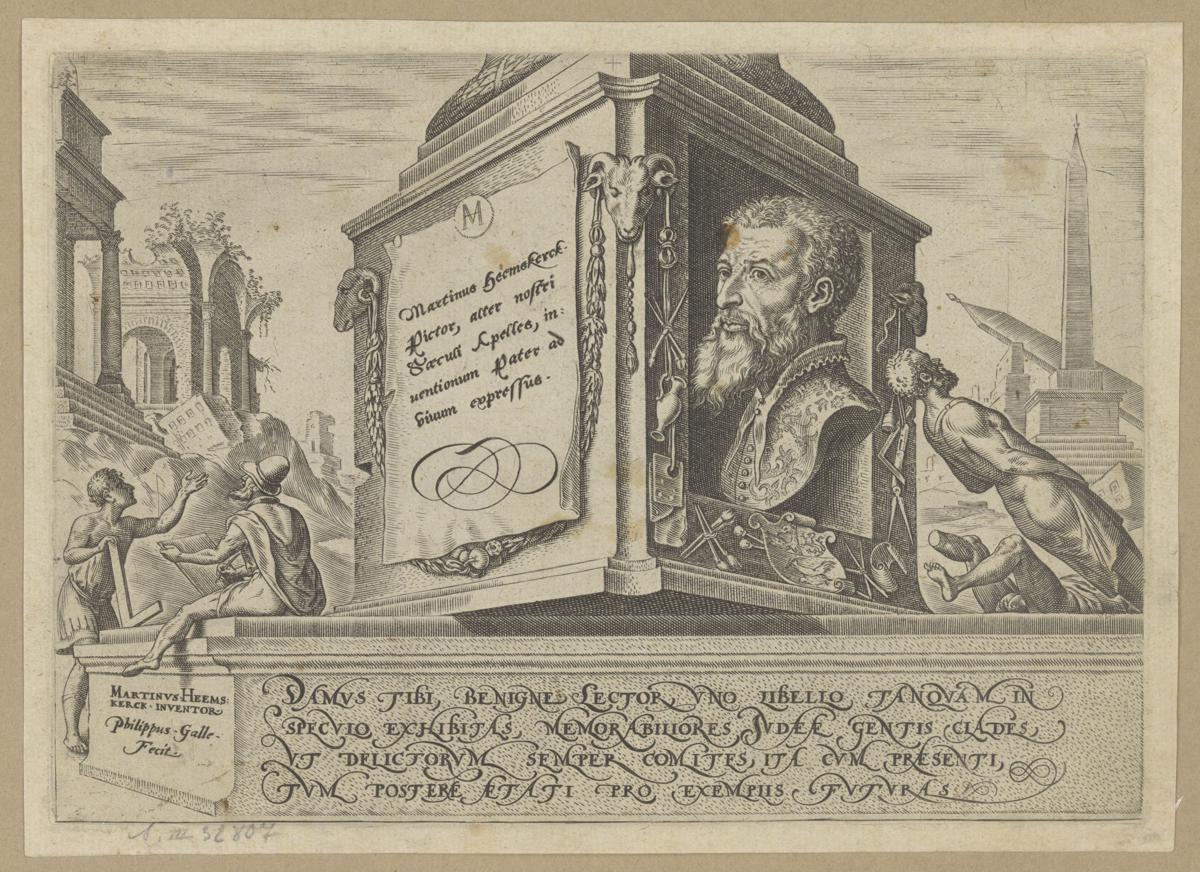 M
Martinus Heemskerck
Pictor, alter nostri
Sæculi Apelles, in:
uentionum Pater ad
viuum expressus.
MARTINVS·HEEMS:
KERCK·INVENTOR
Philippus·Galle·
Fecit
DAMVS TIBI, BENIGNE LECTOR, VNO LIBELLO TANQVAM IN
SPECVLO EXHIBITAS, MEMORABILIORES IVDEÆ GENTIS CLADES,
VT DELICTORVM SEMPER COMITES, ITA CVM PRÆSENTI,
TVM POSTERÆ ÆTATI PRO EXEMPLIS FVTVRAS
32807